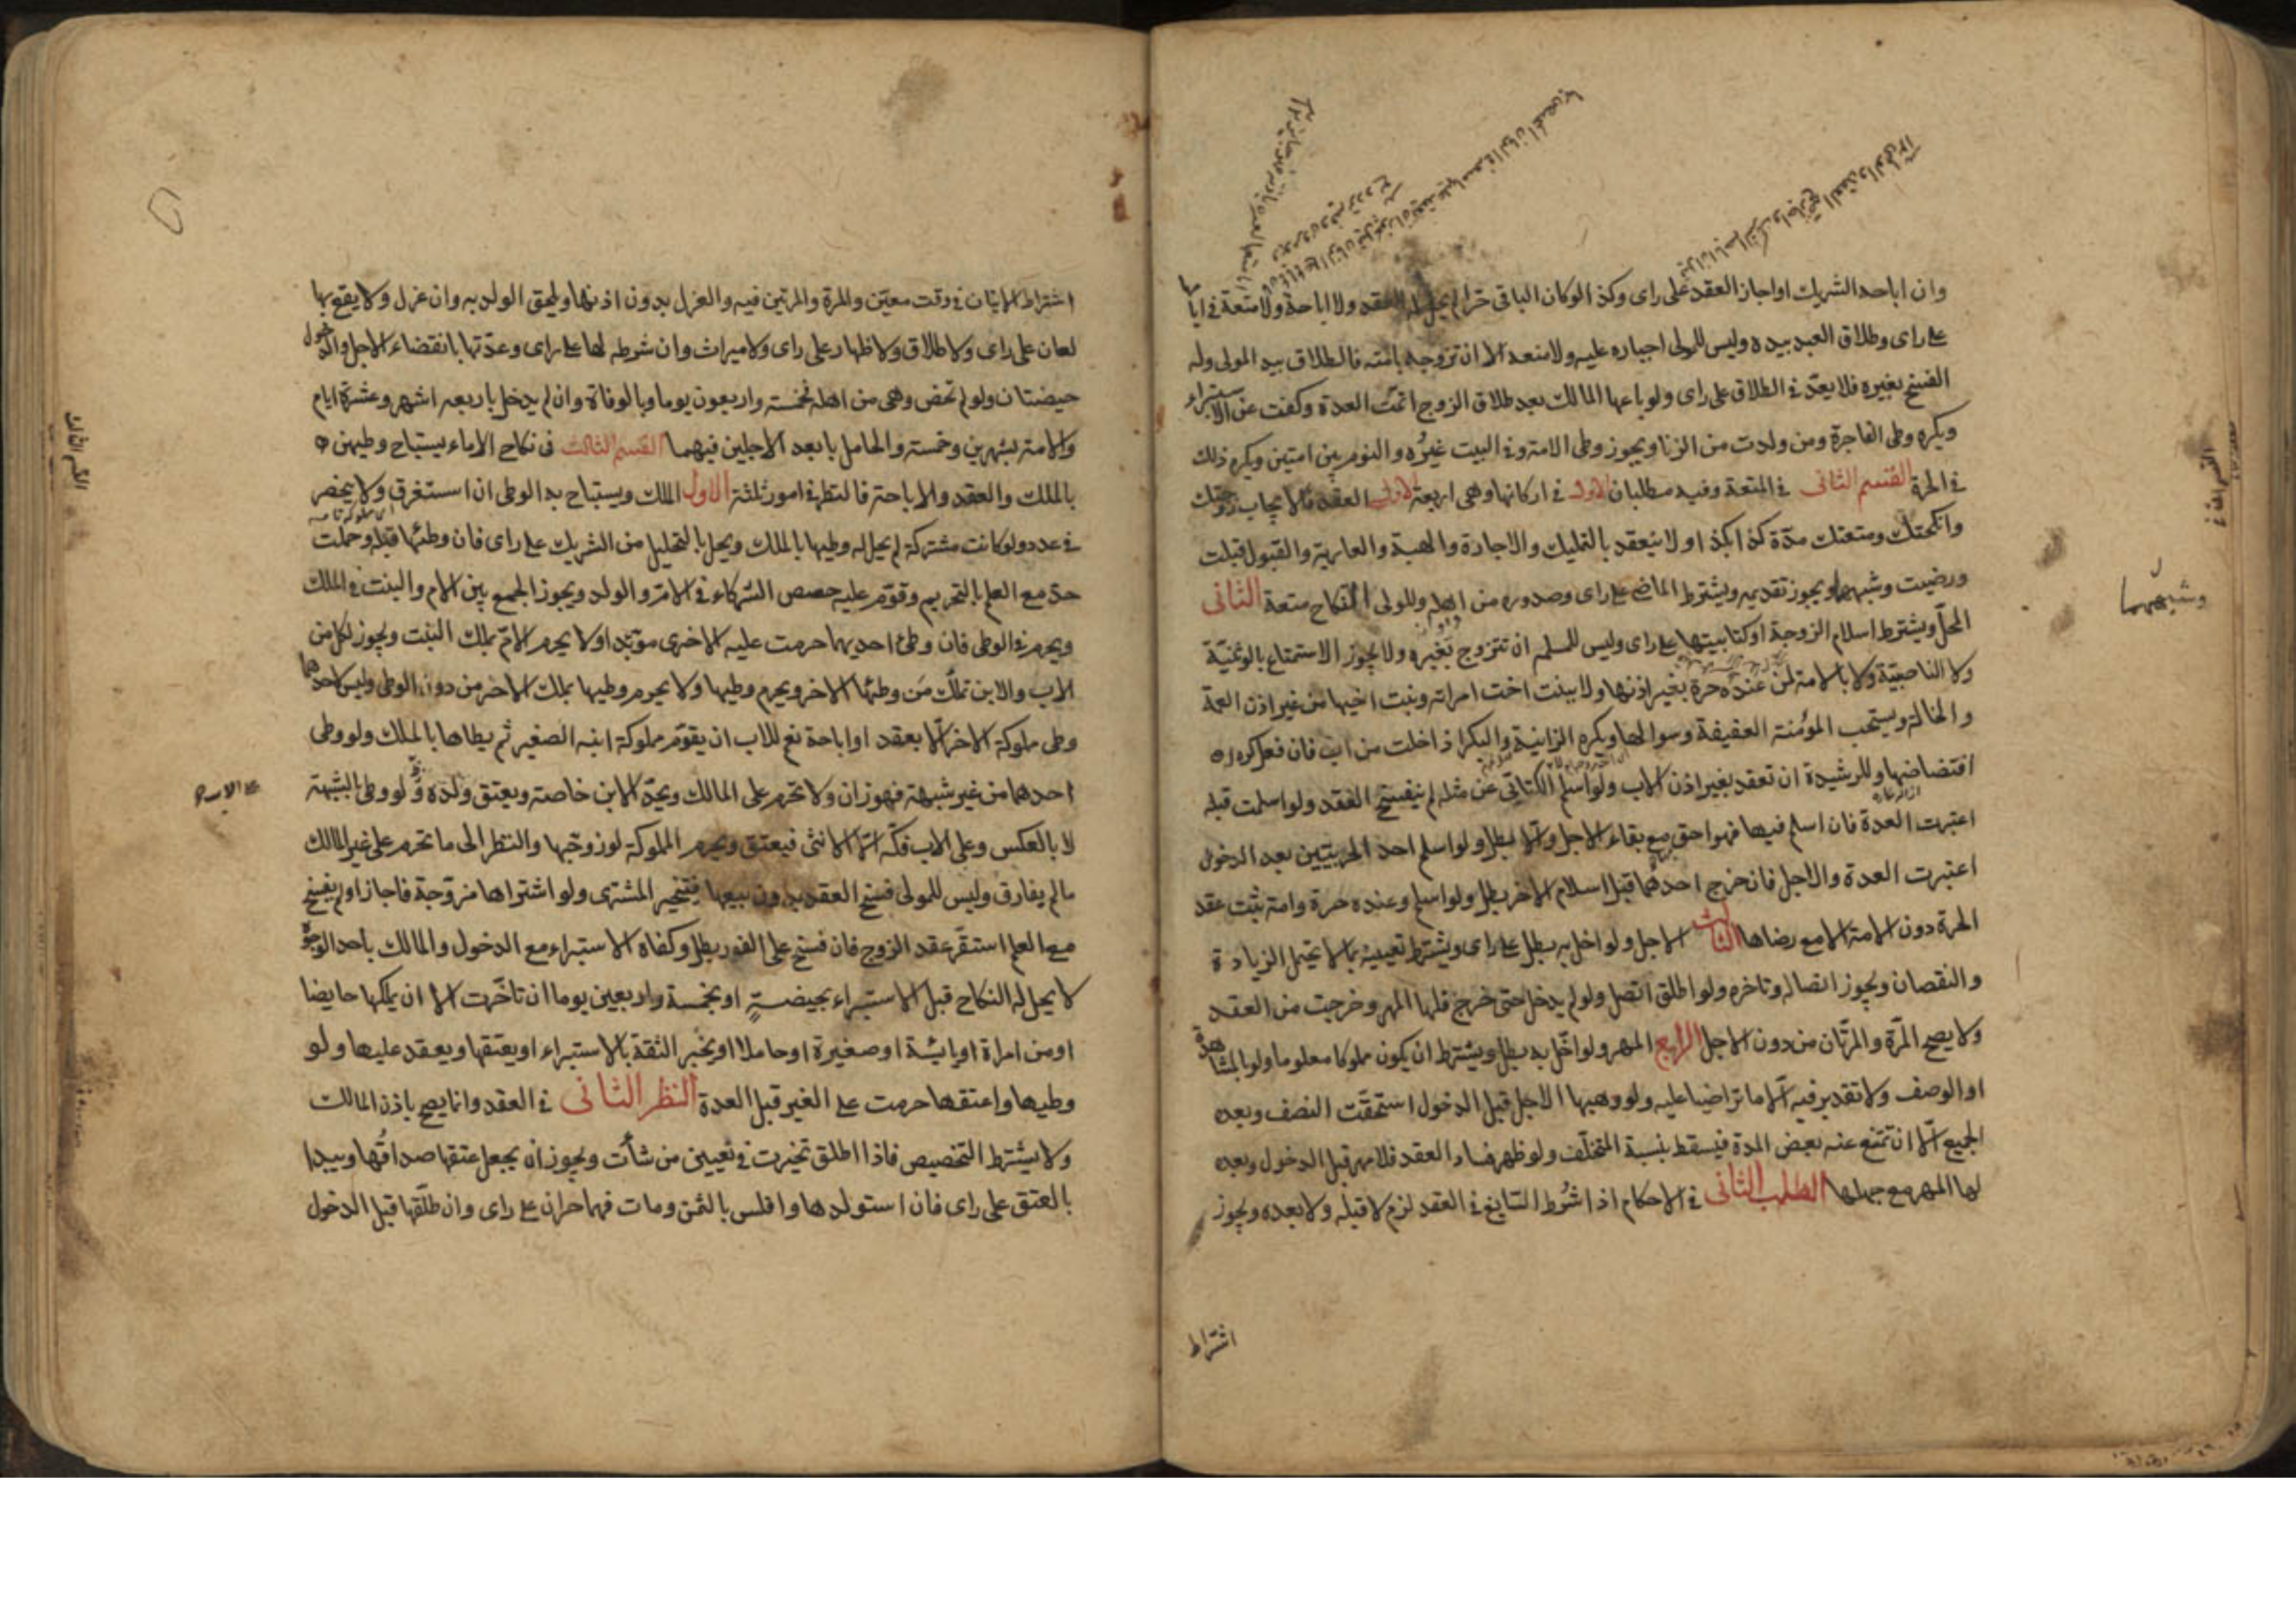 وان اباحه الشريك او اجاز العقد على راى وكذا لو كان الباقى حرا لم يحل له العقد ولا اباحة ولا متعة فى ايامها
على راى وطلاق العبد بيده وليس للمولى اجباره عليه ولا منعه الا ان تزوجه بامته فالطلاق بيد المولى وله
الفسخ بغيره فلا يعد فى الطلاق على راى ولو باعها المالك بعد طلاق الزوج اتمت العدة وكفت عن الاستبراء
ويكره وطى الفاجرة ومن ولدت من الزنا ويجوز وطى الامة وفى البيت غيره والنوم بين امتين ويكره ذلك
فى الحرة القسم الثانى فى المتعة وفيه مطلبان الاول فى اركانها وهى اربعة الاول العقد فالايجاب زوجتك
وانكحتك ومتعتك مدة كذا بكذا ولا ينعقد بالتمليك والاجارة والهبة والعارية والقبول قبلت
ورضيت وشبههما ويجوز تقديمه ويشترط الماضى على راى وصدوره من اهله وللولى النكاح متعة الثانى
المحل ويشترط اسلام الزوجة او كتابيتها على راى وليس للمسلمة ان تتزوج بغيره ولا يجوز الاستمتاع بالوثنية
ولا الناصبية ولا بالامة لمن عنده حرة بغير اذنها ولا ببنت اخت امراته وبنت اخيها من غير اذن العمة
والخالة ويستحب المؤمنة العفيفة وسوالها ويكره الزانية والبكر اذا خلت من اب فان فعل كره له
افتضاضها وللرشيدة ان تعقد بغير اذن الاب ولو اسلم الكتابى عن مثله لم ينفسخ العقد ولو اسلمت قبله
اعتبرت العدة فان اسلم فيها فهو احق مع بقاء الاجل والا بطل ولو اسلم احد الحربيين بعد الدخول
اعتبرت العدة والاجل فان خرج احدهما قبل اسلام الاخر بطل ولو اسلم وعنده حرة وامة ثبت عقد
الحرة دون الامة الا مع رضاها الثالث الاجل ولو اخل به بطل على راى ويشترط تعيينه بما لا يحتمل الزيادة
والنقصان ويجوز اتصاله وتاخره ولو اطلق اتصل ولو لم يدخل حتى خرج فلها المهر وخرجت من العقد
ولا يصح المرة والمرتان من دون الاجل الرابع المهر ولو اخل به بطل ويشترط ان يكون مملوكا معلوما ولو بالمشاهدة
او الوصف ولا تقدير فيه الا ما تراضيا عليه ولو وهبها الاجل قبل الدخول استحقت النصف وبعده
الجميع الا ان تمنع عنه بعض المدة فيسقط بنسبة المتخلف ولو ظهر فساد العقد فلا مهر قبل الدخول وبعده
لها المهر مع جهلها المطلب الثانى فى الاحكام اذا شرط السايغ فى العقد لزم لا قبله ولا بعده ويجوز
اشتراط
وشبههما
اشتراط الاتيان فى وقت معين والمرة والمرتين فيه والعزل بدون اذنها ويلحق الولد به وان عزل ولا يقع بها
لعان على راى ولا طلاق ولا ظهار على راى ولا ميراث وان شرطه لها على راى وعدتها بانقضاء الاجل والدخول
حيضتان ولو لم تحض وهى من اهله فخمسة واربعون يوما وبالوفاة وان لم يدخل باربعه اشهر وعشرة ايام
والامة بشهرين وخمسة والحامل بابعد الاجلين فيهما القسم الثالث فى نكاح الاماء يستباح وطيهن
بالملك والعقد والاباحة فالنظر فى امور ثلثة الاول الملك ويستباح به الوطى ان استغرق ولا ينحصر
فى عدد ولو كانت مشتركة لم يحل له وطيها بالملك ويحل بالتحليل من الشريك على راى فان وطئها قبله وحملت
حد مع العلم بالتحريم وقوم عليه حصص الشركاء فى الام والولد ويجوز الجمع بين الام والبنت فى الملك
ويحرم فى الوطى فان وطى احديهما حرمت عليه الاخرى مؤبدا ولا يحرم الام بملك البنت ويجوز لكل من
الاب والابن تملك من وطئها الاخر ويحرم وطيها ولا يحرم وطيها بملك الاخر من دون الوطى وليس لاحدهما
وطى مملوكة الاخر الا بعقد او اباحة نعم للاب ان يقوم مملوكة ابنه الصغير ثم يطاها بالملك ولو وطى
احدهما من غير شبهة فهو زان ولا تحرم على المالك ويحد الابن خاصة ويعتق ولده ولو وطى بالشبهة
لا بالعكس وعلى الاب فكه الا الانثى فيعتق ويحرم المملوكة لو زوجها والنظر الى ما تحرم على غير المالك
ما لم يفارق وليس للمولى فسخ العقد بدون بيعها فيتخير المشترى ولو اشتراها مزوجة فاجاز او لم يفسخ
مع العلم استقر عقد الزوج فان فسخ على الفور بطل وكفاه الاستبراء مع الدخول والمالك باحد الوجوه
لا يحل له النكاح قبل الاستبراء بحيضة او بخمسة واربعين يوما ان تاخرت الا ان يملكها حايضا
او من امراة او يائسة او صغيرة او حاملا او يخبر الثقة بالاستبراء او يعتقها ويعقد عليها ولو
وطيها واعتقها حرمت على الغير قبل العدة النظر الثانى فى العقد وانما يصح باذن المالك
ولا يشترط التخصيص فاذا اطلق تخيرت فى تعيين من شأت ويجوز ان يجعل عتقها صداقها ويبدا
بالعتق على راى فان استولدها وافلس بالثمن ومات فهما حران على راى وان طلقها قبل الدخول
القسم الثالث